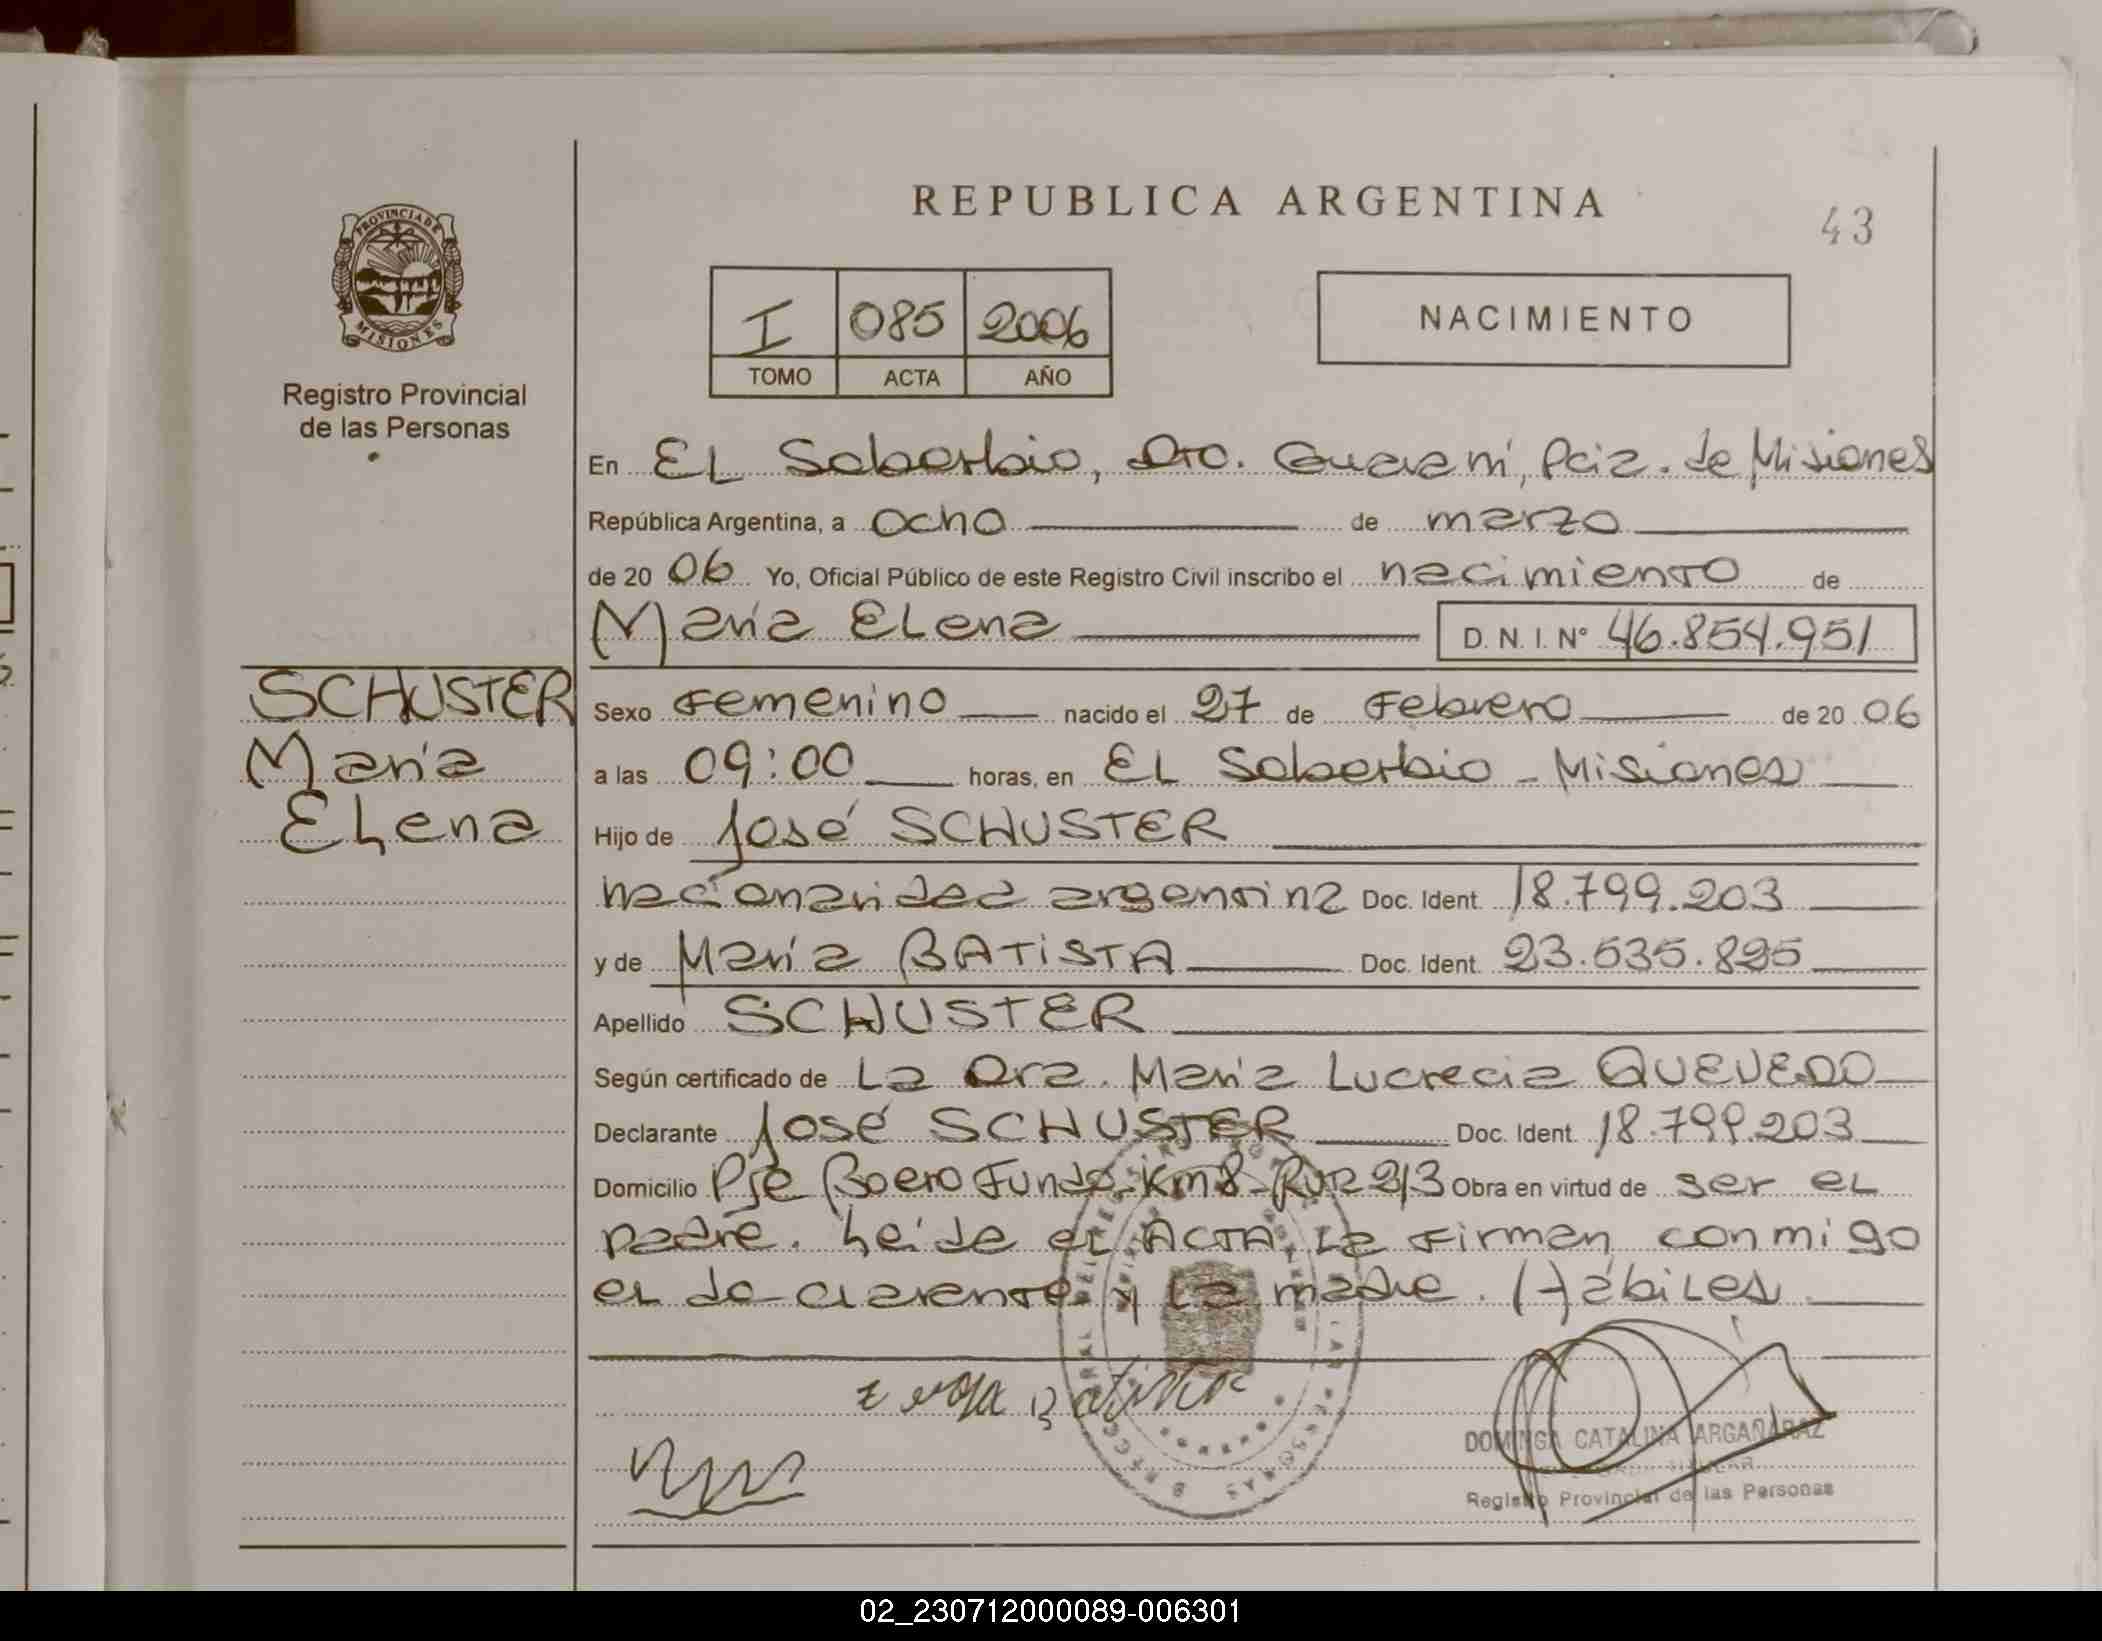 REPUBLICA ARGENTINA
43
PROVINCIA DE
MISIONES
Registro Provincial
de las Personas
I 085 2006
TOMO ACTA AÑO
NACIMIENTO
En EL Soberbio, Dto. Guaraní, Pcia. de Misiones
República Argentina, a ocho de marzo
de 20 06 Yo, Oficial Público de este Registro Civil inscribo el nacimiento de
María Elena D. N. I. N° 46.854.951
SCHUSTER
María
Elena
Sexo Femenino nacido el 27 de Febrero de 20 06
a las 09:00 horas, en EL Soberbio - Misiones
Hijo de José SCHUSTER
nacionalidad argentina Doc. Ident. 18.799.203
y de María BATISTA Doc. Ident. 23.535.895
Apellido SCHUSTER
Según certificado de La Dra. María Lucrecia QUEVEDO
Declarante José SCHUSTER Doc. Ident. 18.799.203
Domicilio Pje Boero Fundo - Km 8 - Ruta 213 Obra en virtud de ser el
padre. Leída el ACTA, la firman conmigo
el declarante y la madre. Hábiles
Batista
DOMINGA CATALINA ARGAÑARAZ
Registro Provincial de las Personas
02_230712000089-006301